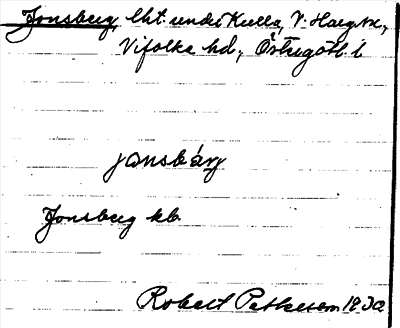 Jonsberg, lht. under Kulla, V. Harg sn,
Vifolka hd, Östergötl. l
jonsbärj
Jonsberg kb.
Robert Pettersson 1930